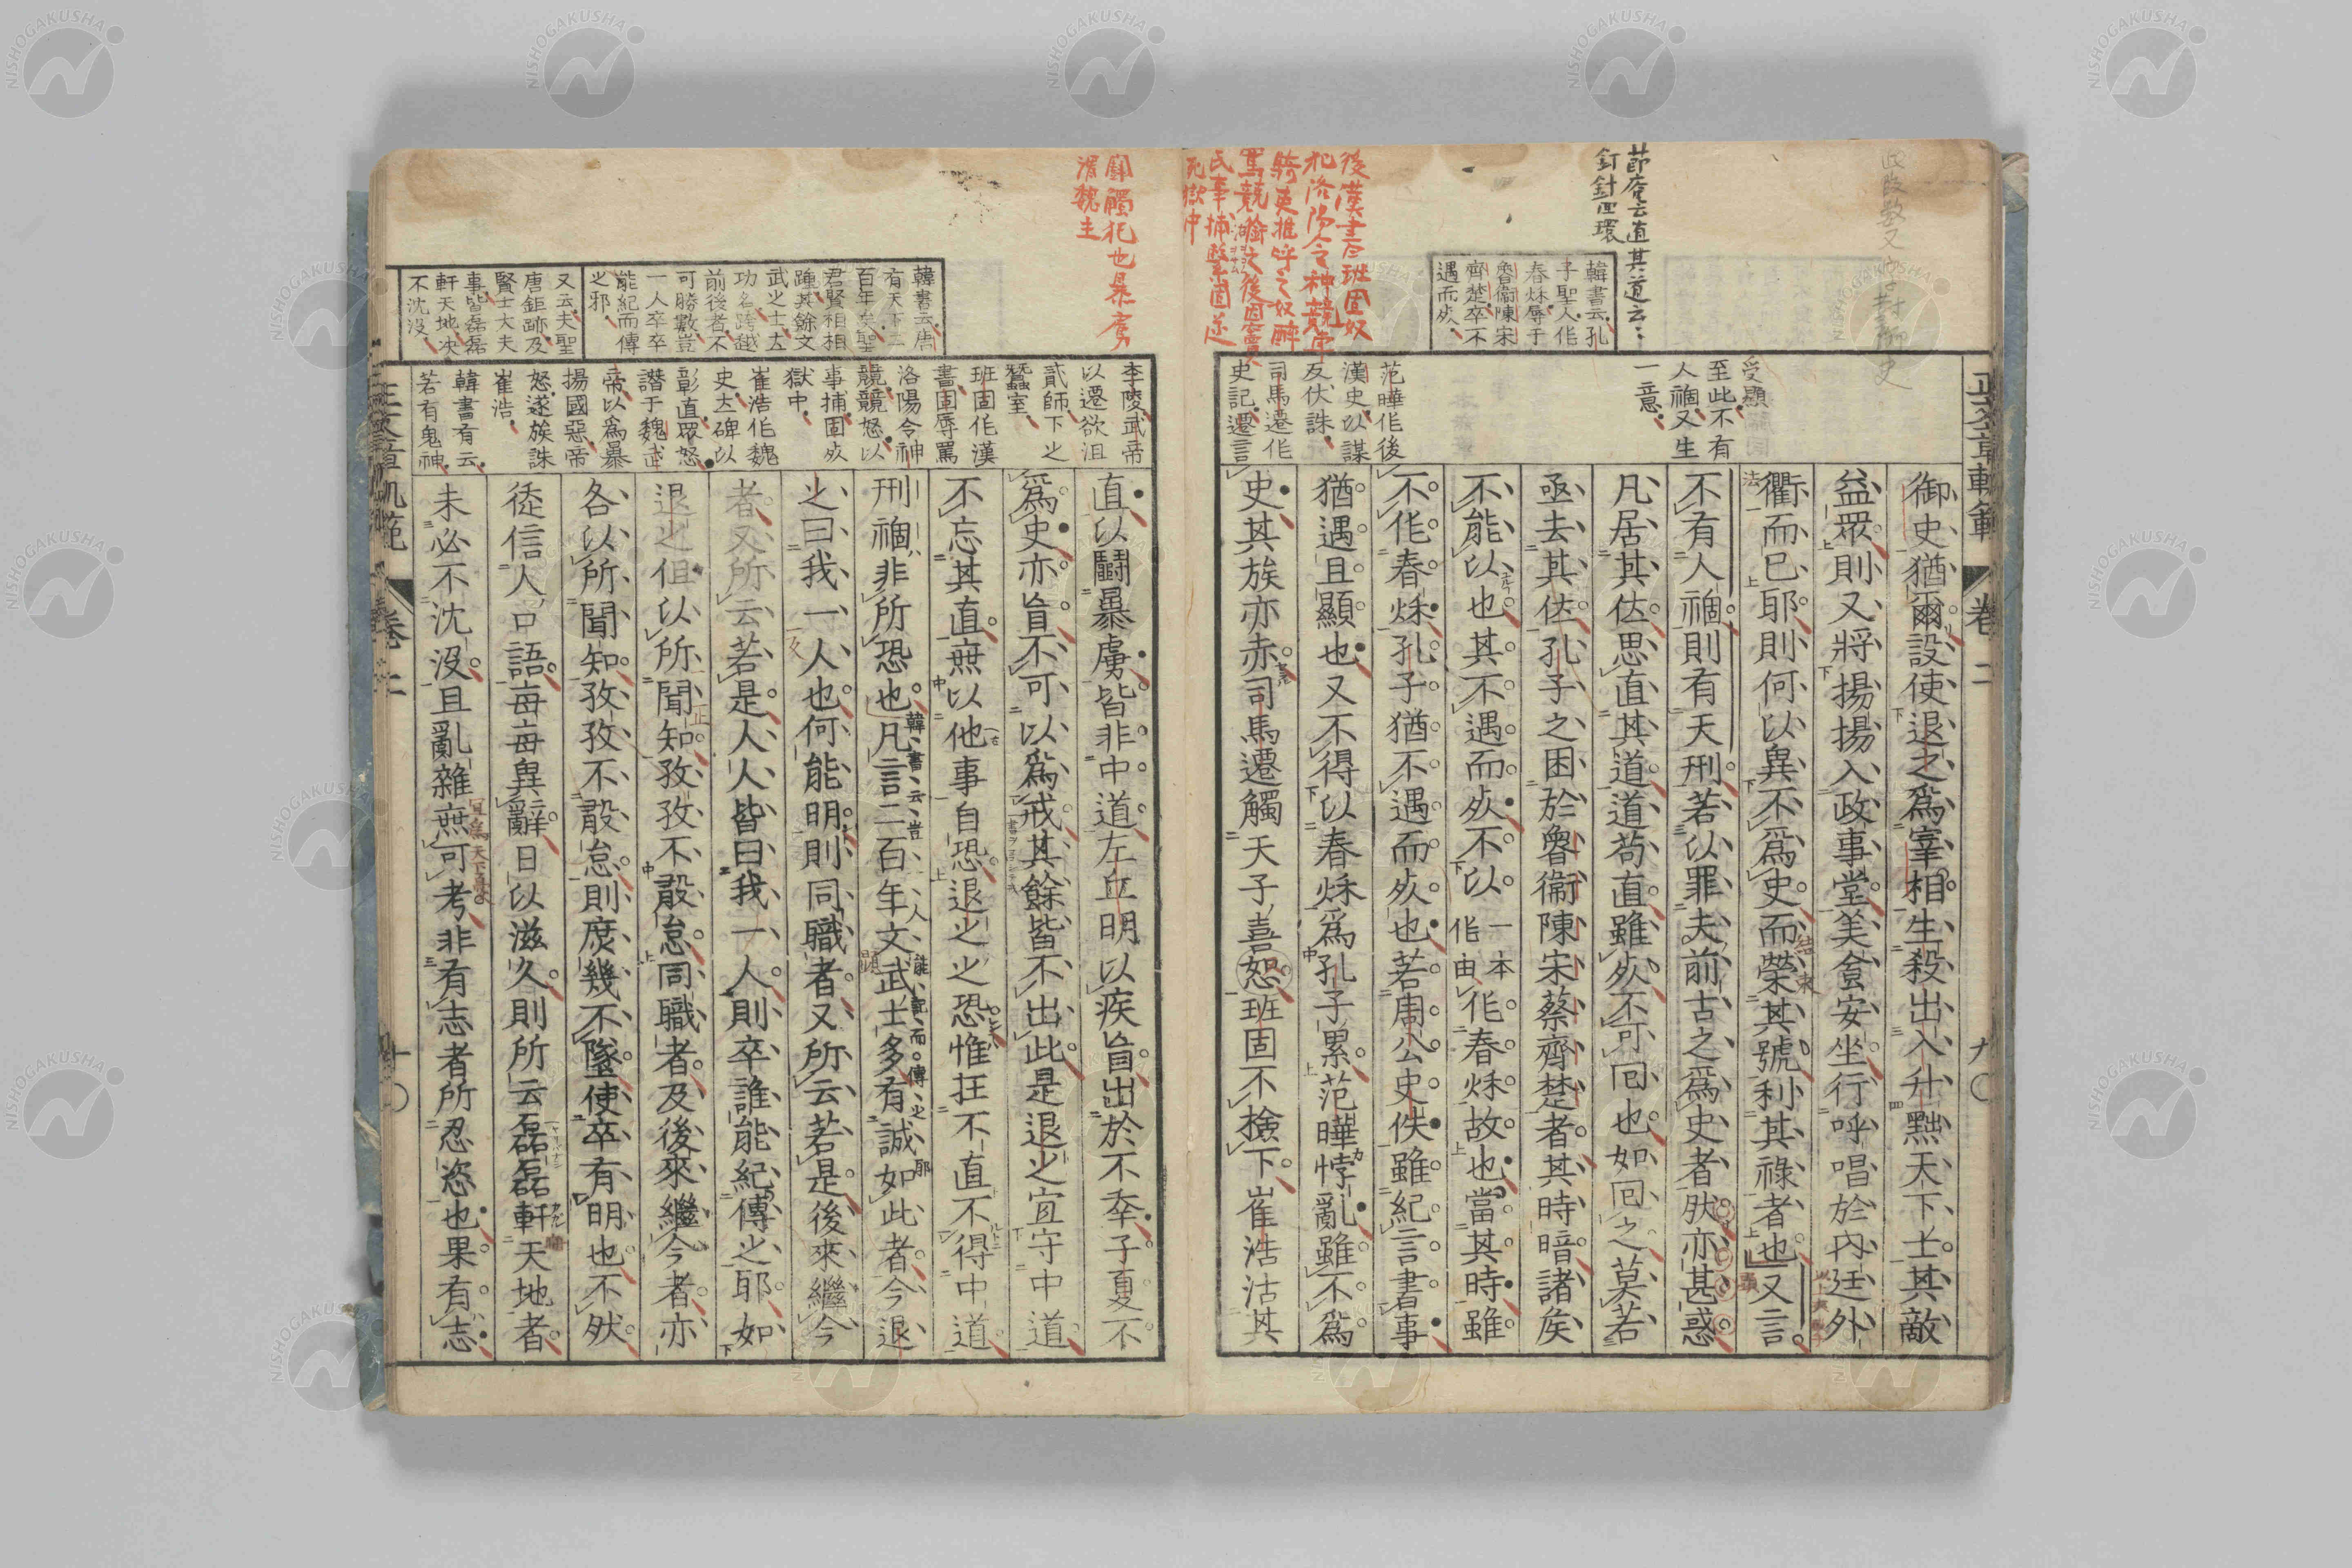 正文章軌範 卷二 九〇
節庵云直其道云々
釘針回環
韓書云孔
子聖人作
春秌辱于
魯衞陳宋
齊楚卒不
遇而歿
後漢書云班固奴
犯洛陽令种競車
騎吏推呼之奴醉
罵競銜之後因竇
氏事捕繫固遂
死獄中
受顯
至此不有
人禍又生
一意
范曄作後
漢史以謀
反伏誅
司馬遷作
史記遷言
御史猶爾設使退之爲宰相生殺出入升黜天下士其敵
益眾則又將揚揚入政事堂美食安坐行呼唱於內廷外
衢而已耶則何以異不爲史而榮其號利其祿者也又言
不有人禍則有天刑若以罪夫前古之爲史者肰亦甚惑
凡居其位思直其道道苟直雖歿不可回也如回之莫若
亟去其位孔子之困於魯衞陳宋蔡齊楚者其時暗諸矦
不能以也其不遇而歿不以一本作由作春秌故也當其時雖
不作春秌孔子猶不遇而歿也若周公史佚雖紀言書事
猶遇且顯也又不得以春秌爲孔子累范曄悖亂雖不爲
史其族亦赤司馬遷觸天子喜怒班固不檢下崔浩沽其
鬭觸犯也暴虐
滑魏主
韓書云唐
有天下二
百年矣聖
君賢相相
踵其餘文
武之士立
功名跨越
前後者不
可勝數豈
一人卒卒
能紀而傳
之邪
又云夫聖
唐鉅跡及
賢士大夫
事皆磊磊
軒天地决
不沈沒
李陵武帝
以遷欲沮
貳師下之
蠶室
班固作漢
書固辱罵
洛陽令神
競競怒以
事捕固歿
獄中
崔浩作魏
史立碑以
彰直眾怒
譖于魏武
帝以爲暴
揚國惡帝
怒遂族誅
崔浩
韓書有云
若有鬼神
直以鬭暴虐皆非中道左丘明以疾盲出於不幸子夏不
爲史亦盲不可以爲戒其餘皆不出此是退之宜守中道
不忘其直無以他事自恐退之之恐惟在不直不得中道
刑禍非所恐也凡言二百年文武士多有誠如此者今退
韓書云豈一人能記而傳之耶
之曰我一人也何能明則同職者又所云若是後來繼今
者又所云若是人人皆曰我一人則卒誰能紀傳之耶如
退之但以所聞知孜孜不敢怠同職者及後來繼今者亦
各以所聞知孜孜不敢怠則庶幾不墜使卒有明也不肰
徒信人口語每每異辭日以滋久則所云磊磊軒天地者
未必不沈沒且亂雜無可考非有志者所忍恣也果有志
正文章軌範 卷二 十〇